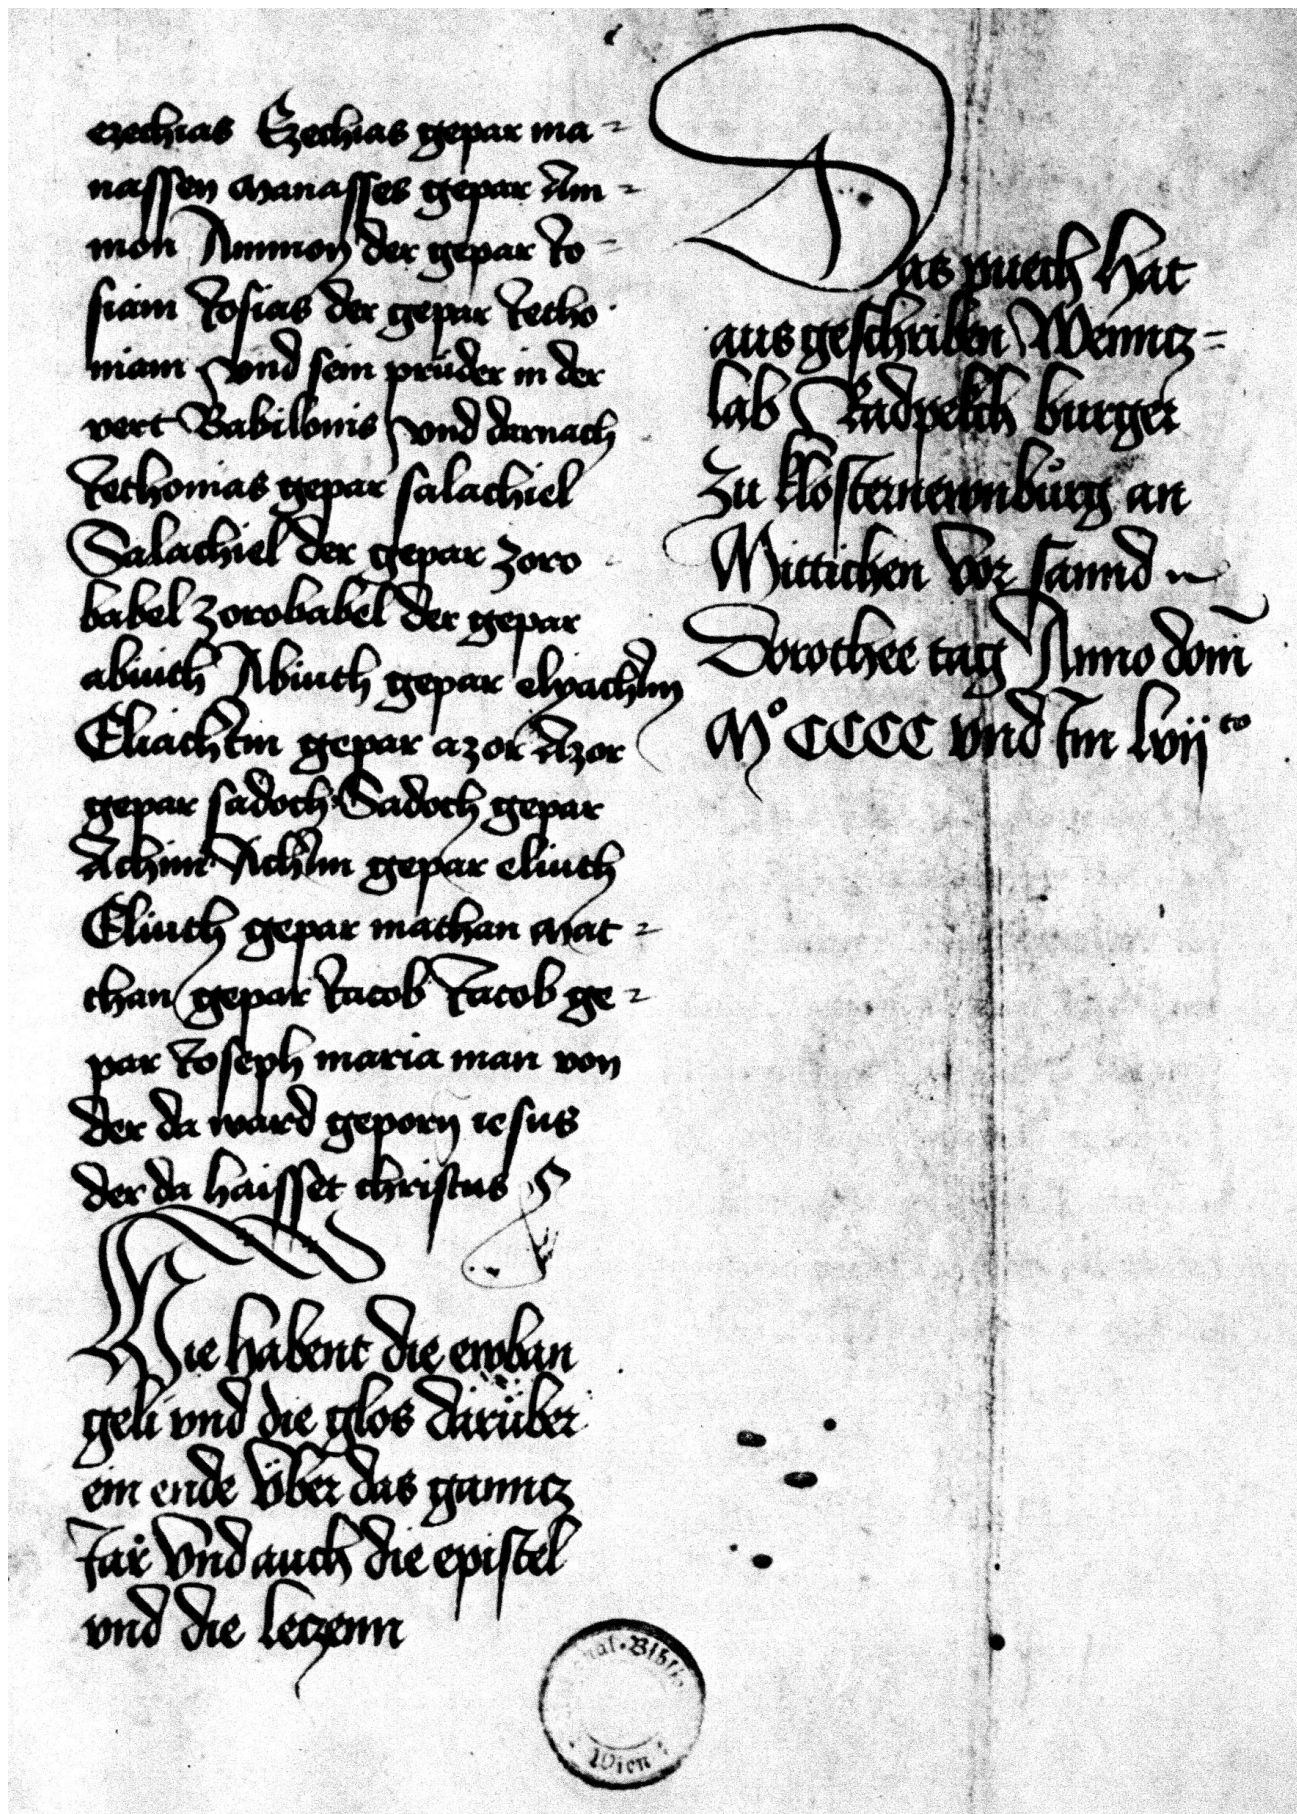 ezechias Ezechias gepar ma-
nassen manasses gepar Am-
mon Ammon der gepar Jo-
siam Josias der gepar Jecho
niam vnd sein prüder in der
vert Babilonis vnd darnach
Jethonias gepar salachiel
Salachiel der gepar zoro
babel zorobabel der gepar
abiuth Abiuth gepar elyachim
Eliachim gepar azor Azor
gepar sadoch Sadoch gepar
Achim Achim gepar eliuth
Eliuth gepar mathan Mat-
than gepar Jacob Jacob ge-
par Joseph maria man von
der da ward geporn iesus
der da haisset christus
Hie habent die ewban
geli vnd die glos darüber
ein ende Vber das ganncz
Jar Vnd auch die epistel
vnd die leczenn
Das puech Hat
aus geschriben Wenncz-
lab Radpekch burger
Zu klosternewnburg an
Mittichen Vor sannd
Dorothee tag Anno dom̃
M° CCCC vnd Jm lvij to
nal-Biblio
Wien